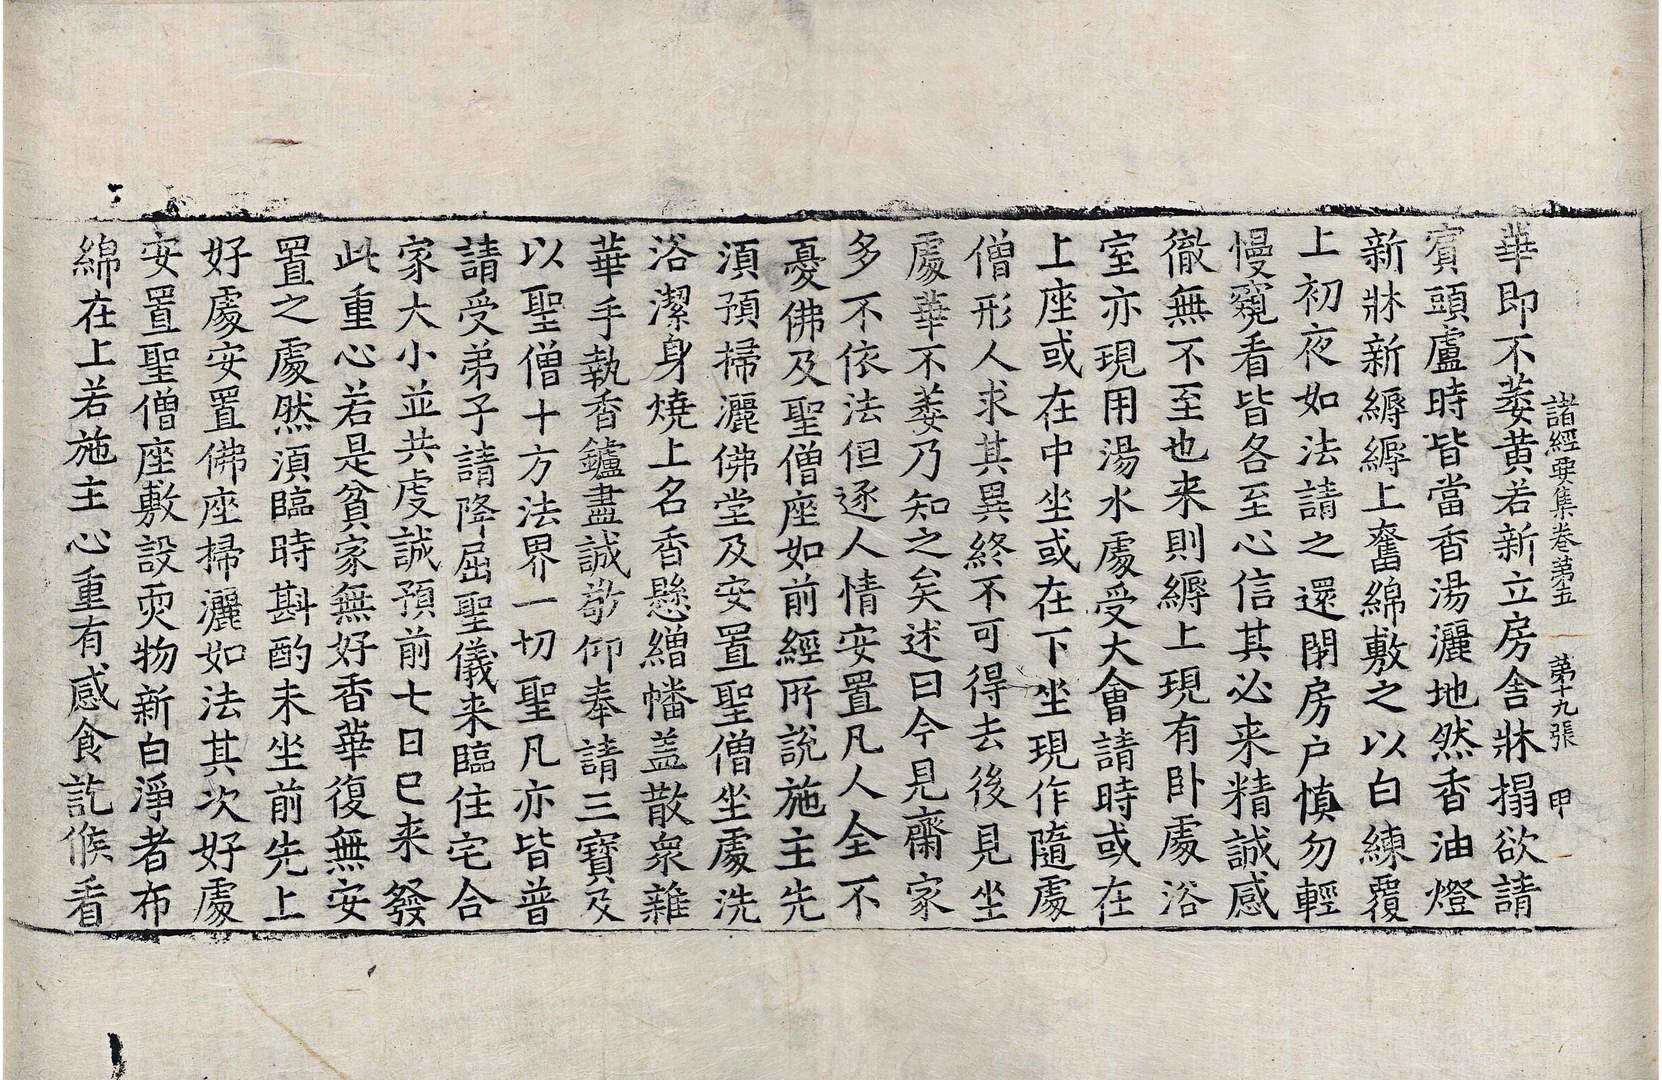 諸經要集卷第五　第十九張　甲
華即不萎黄若新立房舍牀搨欲請
賓頭盧時皆當香湯灑地然香油燈
新牀新縟縟上奮綿敷之以白練覆
上初夜如法請之還閉房户慎勿輕
慢窺看皆各至心信其必来精誠感
徹無不至也来則縟上現有卧處浴
室亦現用湯水處受大會請時或在
上座或在中坐或在下坐現作隨處
僧形人求其異終不可得去後見坐
處華不萎乃知之矣述曰今見齋家
多不依法但逐人情安置凡人全不
憂佛及聖僧座如前經所說施主先
湏預掃灑佛堂及安置聖僧坐處洗
浴潔身燒上名香懸繒幡盖散衆雜
華手執香鑪盡誠敬仰奉請三寳及
以聖僧十方法界一切聖凡亦皆普
請受弟子請降屈聖儀来臨住宅合
家大小並共虔誠預前七日已来發
此重心若是貧家無好香華復無安
置之處然湏臨時斟酌未坐前先上
好處安置佛座掃灑如法其次好處
安置聖僧座敷設受物新白淨者布
綿在上若施主心重有感食訖候看